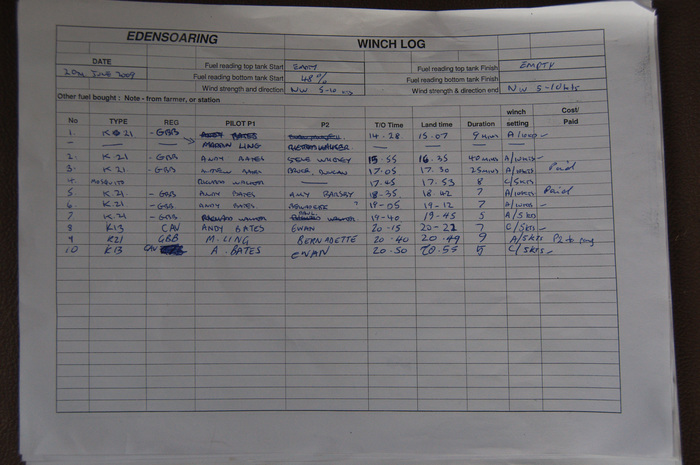 EDENSOARING WINCH LOG
DATE Fuel reading top tank Start EMPTY Fuel reading top tank Finish EMPTY
20th June 2009 Fuel reading bottom tank Start 48% Fuel reading bottom tank Finish
Wind strength and direction NW 5-10 Wind strength & direction end NW 5-10 kts
Other fuel bought : Note - from farmer, or station
No TYPE REG PILOT P1 P2 T/O Time Land time Duration winch setting Cost/ Paid
1. K 21 -GBB ANDY BATES 14-28 15.07 9 mins A/
MARTIN LING
2. K 21 -GBB ANDY BATES STEVE 15.55 16.35 40 mins A/
3. K 21. -GBB BATES BRUCE 17.05 17.30 25 mins A/ Paid
4 MOSQUITO WALKER 17.45 17.53 8 C/5kts
5 K 21. -GBB ANDY BATES AMY 18.35 18 42 7 A/ Paid
6. K 21 -GBB ANDY BATES 19-05 19-12 7 A/
7 K 21 -GBB WALKER PAUL WALKER 19-40 19-45 5 A/5 kts
8 K13 CAN ANDY BATES EWAN 20-15 20-22 7 C/5kts
9 K21 GBB M. LING BERNADETTE 20-40 20.49 9 A/5kts P2 to pay
10 K13 CAN A. BATES EWAN 20.50 20.55 5 C/5kts